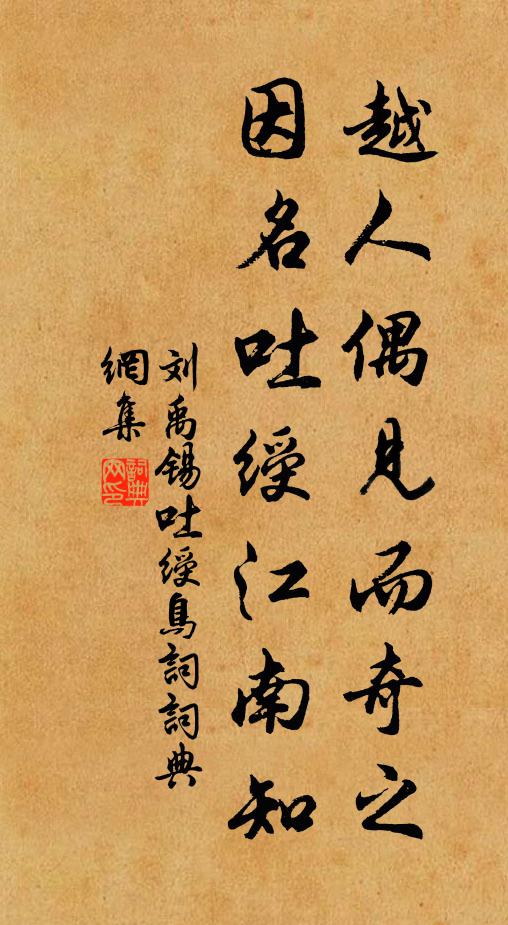 越人偶見而奇之
因名吐綬江南知
刘禹锡吐綬鳥詞詞典
網集
詞典
网印